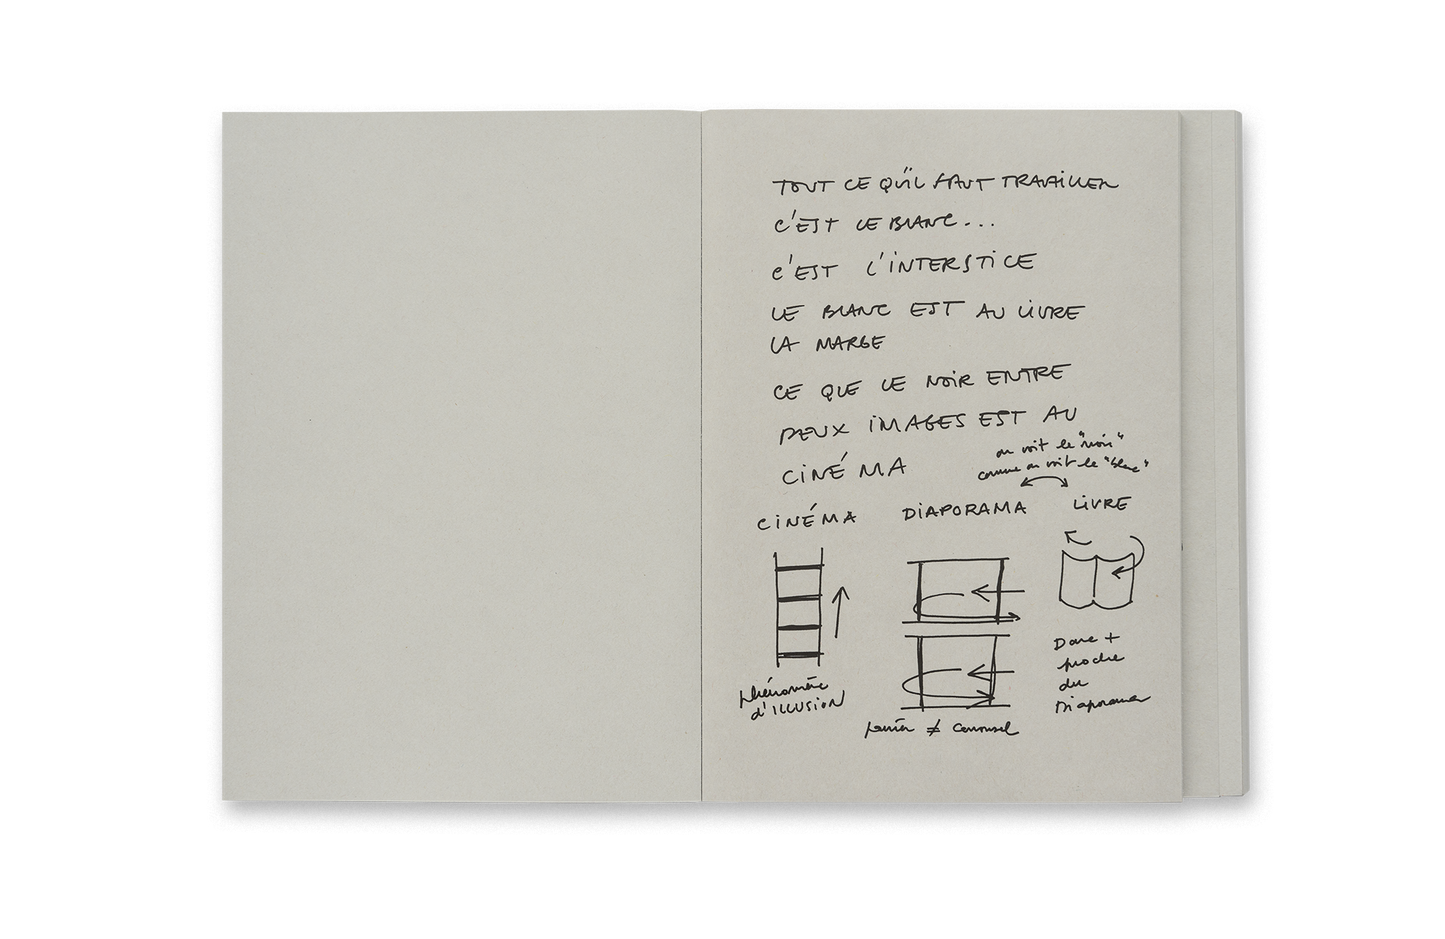 TOUT CE QU'IL FAUT TRAVAILLER
C'EST LE BLANC...
C'EST L'INTERSTICE
LE BLANC EST AU LIVRE
LA MARGE
CE QUE LE NOIR ENTRE
DEUX IMAGES EST AU
CINÉMA
on voit le "noir"
comme on voit le "blanc"
CINÉMA DIAPORAMA LIVRE
Phénomène
d'ILLUSION
panier ≠ carrousel
Donc +
proche
du
Diaporama